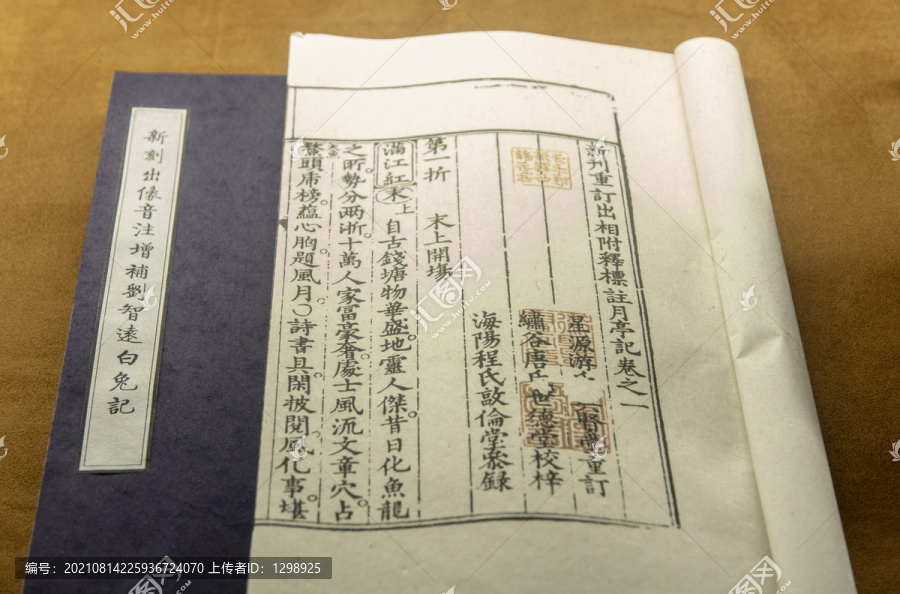 新刻出像音注增補劉智遠白兔記
新刊重訂出相附釋標註月亭記卷之一
星源游氏 重訂
繡谷唐氏 世德堂 校梓
海陽程氏 敦倫堂 叅錄
第一折 末上開場
滿江紅 末上 自古錢塘物華盛地靈人傑昔日化魚龍
之所勢分兩浙十萬人家富豪奢處士風流文章穴占
鰲頭席榜蘊心胸題風月〇詩書具閑披閱風化事堪
汇图网
www.huitu.com
编号：20210814225936724070 上传者ID：1298925